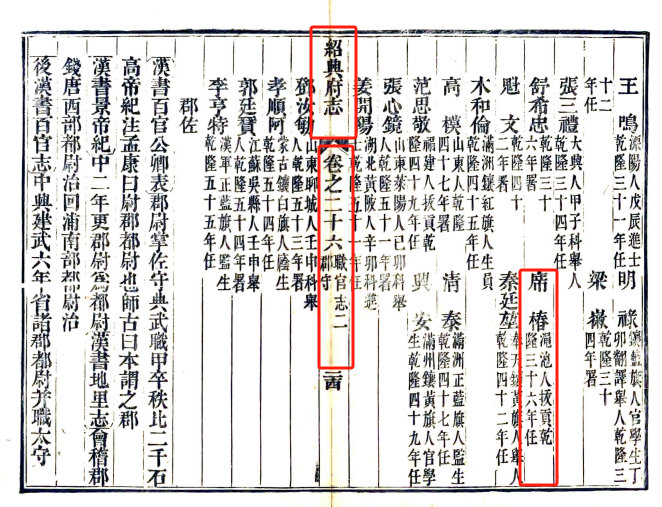 王　鳴　溧陽人戊辰進士乾隆三十一年任　明　祿　鑲藍旗人官學生丁卯翻譯舉人乾隆三
十二年任　梁　乾隆三十四年署
張三禮　大興人甲子科舉人乾隆三十四年任
舒希忠　乾隆三十六年署　席　椿　澠池人拔貢乾隆三十六年任
魁　文　乾隆四十二年署　秦廷堃　奉天鑲黃旗人舉人乾隆四十二年任
木和倫　滿洲鑲紅旗人生員乾隆四十五年任
高　模　山東人乾隆四十七年署　清　泰　滿洲正藍旗人監生乾隆四十七年任
范思敬　福建人拔貢乾隆四十九年任　興　安　滿州鑲黃旗人官學生乾隆四十九年任
張心鏡　山東萊陽人己卯科舉人乾隆五十一年署
姜開陽　湖北黃陂人辛卯科進士乾隆五十一年任
紹興府志　卷之二十六　職官志二　郡守
鄧汝敏　山東聊城人壬申科舉人乾隆五十三年署
孝順阿　蒙古鑲白旗人廕生乾隆五十四年任
郭廷　江蘇吳縣人壬申舉人乾隆五十四年署
李亨特　漢軍正藍旗人監生乾隆五十五年任
郡佐
漢書百官公卿表郡尉掌佐守典武職甲卒秩比二千石
高帝紀注孟康曰尉郡都尉也師古曰本謂之郡
漢書景帝紀中二年更郡尉爲都尉漢書地里志會稽郡
錢唐西部都尉治回浦南部都尉治
後漢書百官志中興建武六年省諸郡都尉并職太守